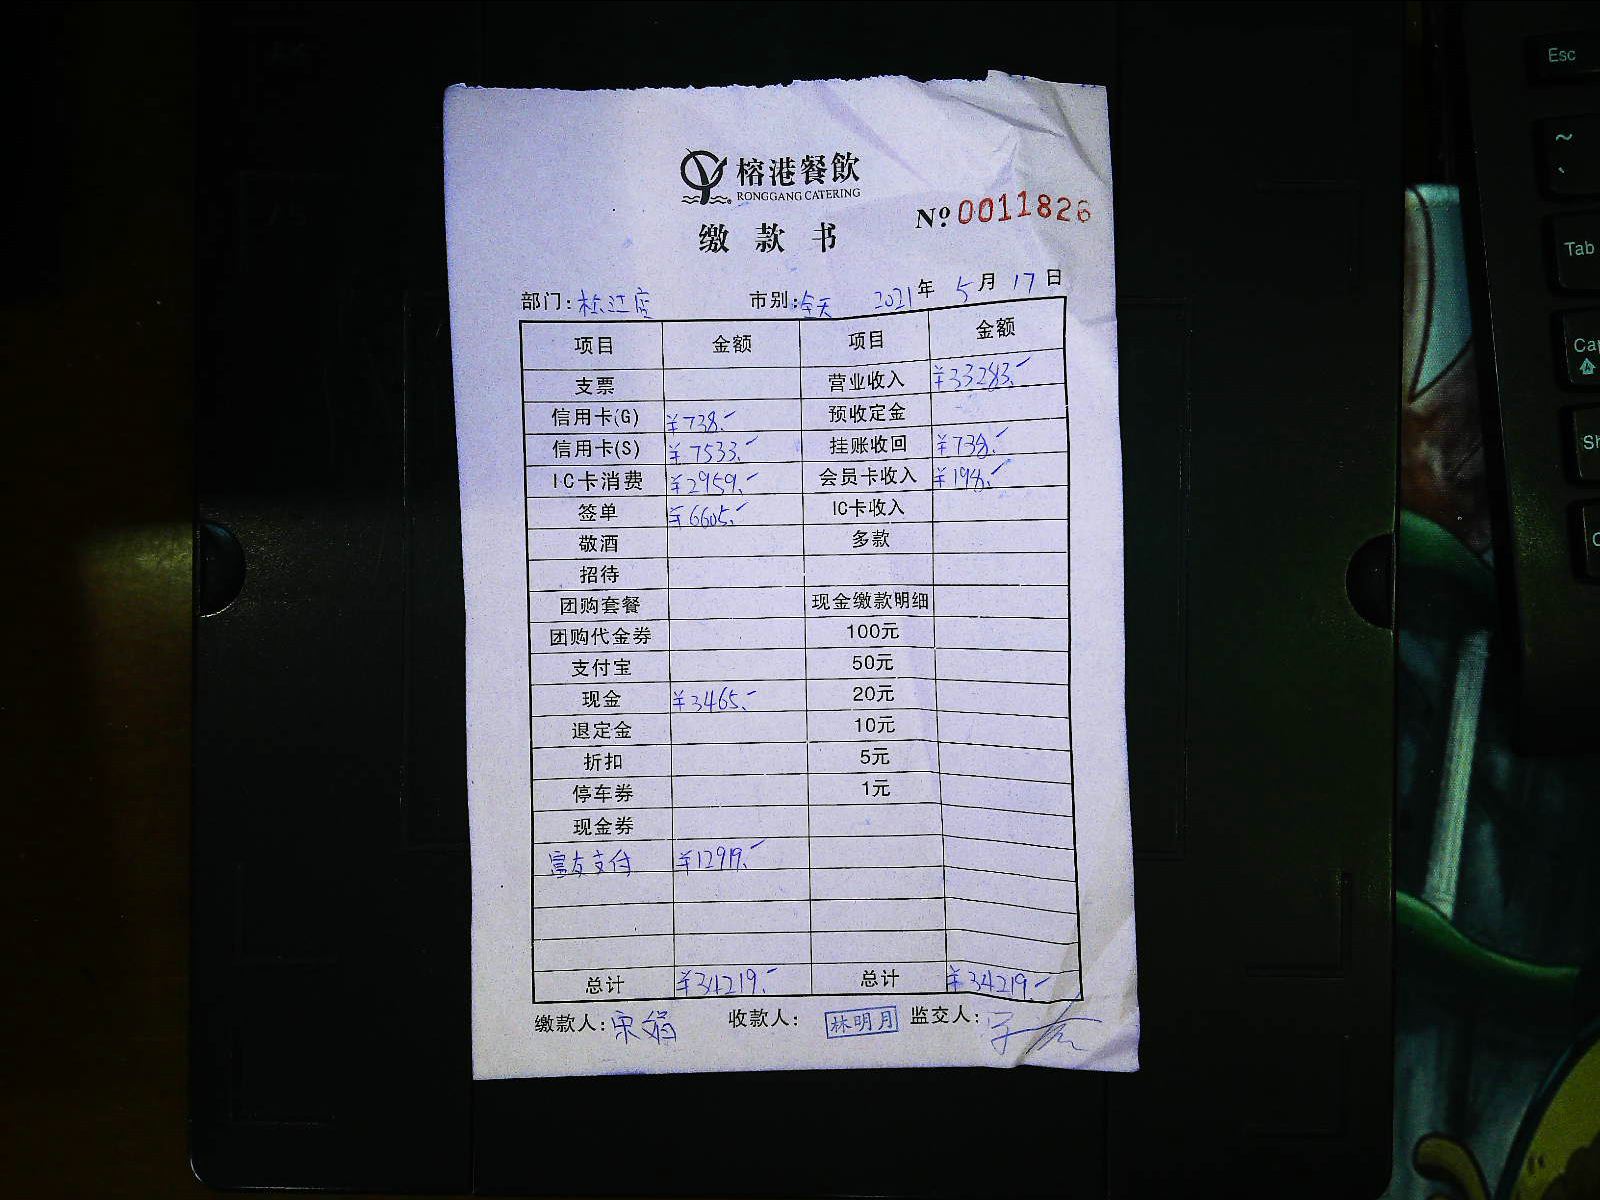 榕港餐飲
RONGGANG CATERING
缴款书
Nº 0011826
部门: 松江店 市别: 全天 2021年 5月 17日
项目 金额 项目 金额
支票 营业收入 ¥33283.-
信用卡(G) ¥738.- 预收定金
信用卡(S) ¥7533.- 挂账收回 ¥738.-
IC卡消费 ¥2959.- 会员卡收入 ¥198.-
签单 ¥6605.- IC卡收入
敬酒 多款
招待
团购套餐 现金缴款明细
团购代金券 100元
支付宝 50元
现金 ¥3465.- 20元
退定金 10元
折扣 5元
停车券 1元
现金券
富友支付 ¥12919.-
总计 ¥34219.- 总计 ¥34219.-
缴款人: 宋娟 收款人: 林明月 监交人:
Esc
~
Tab